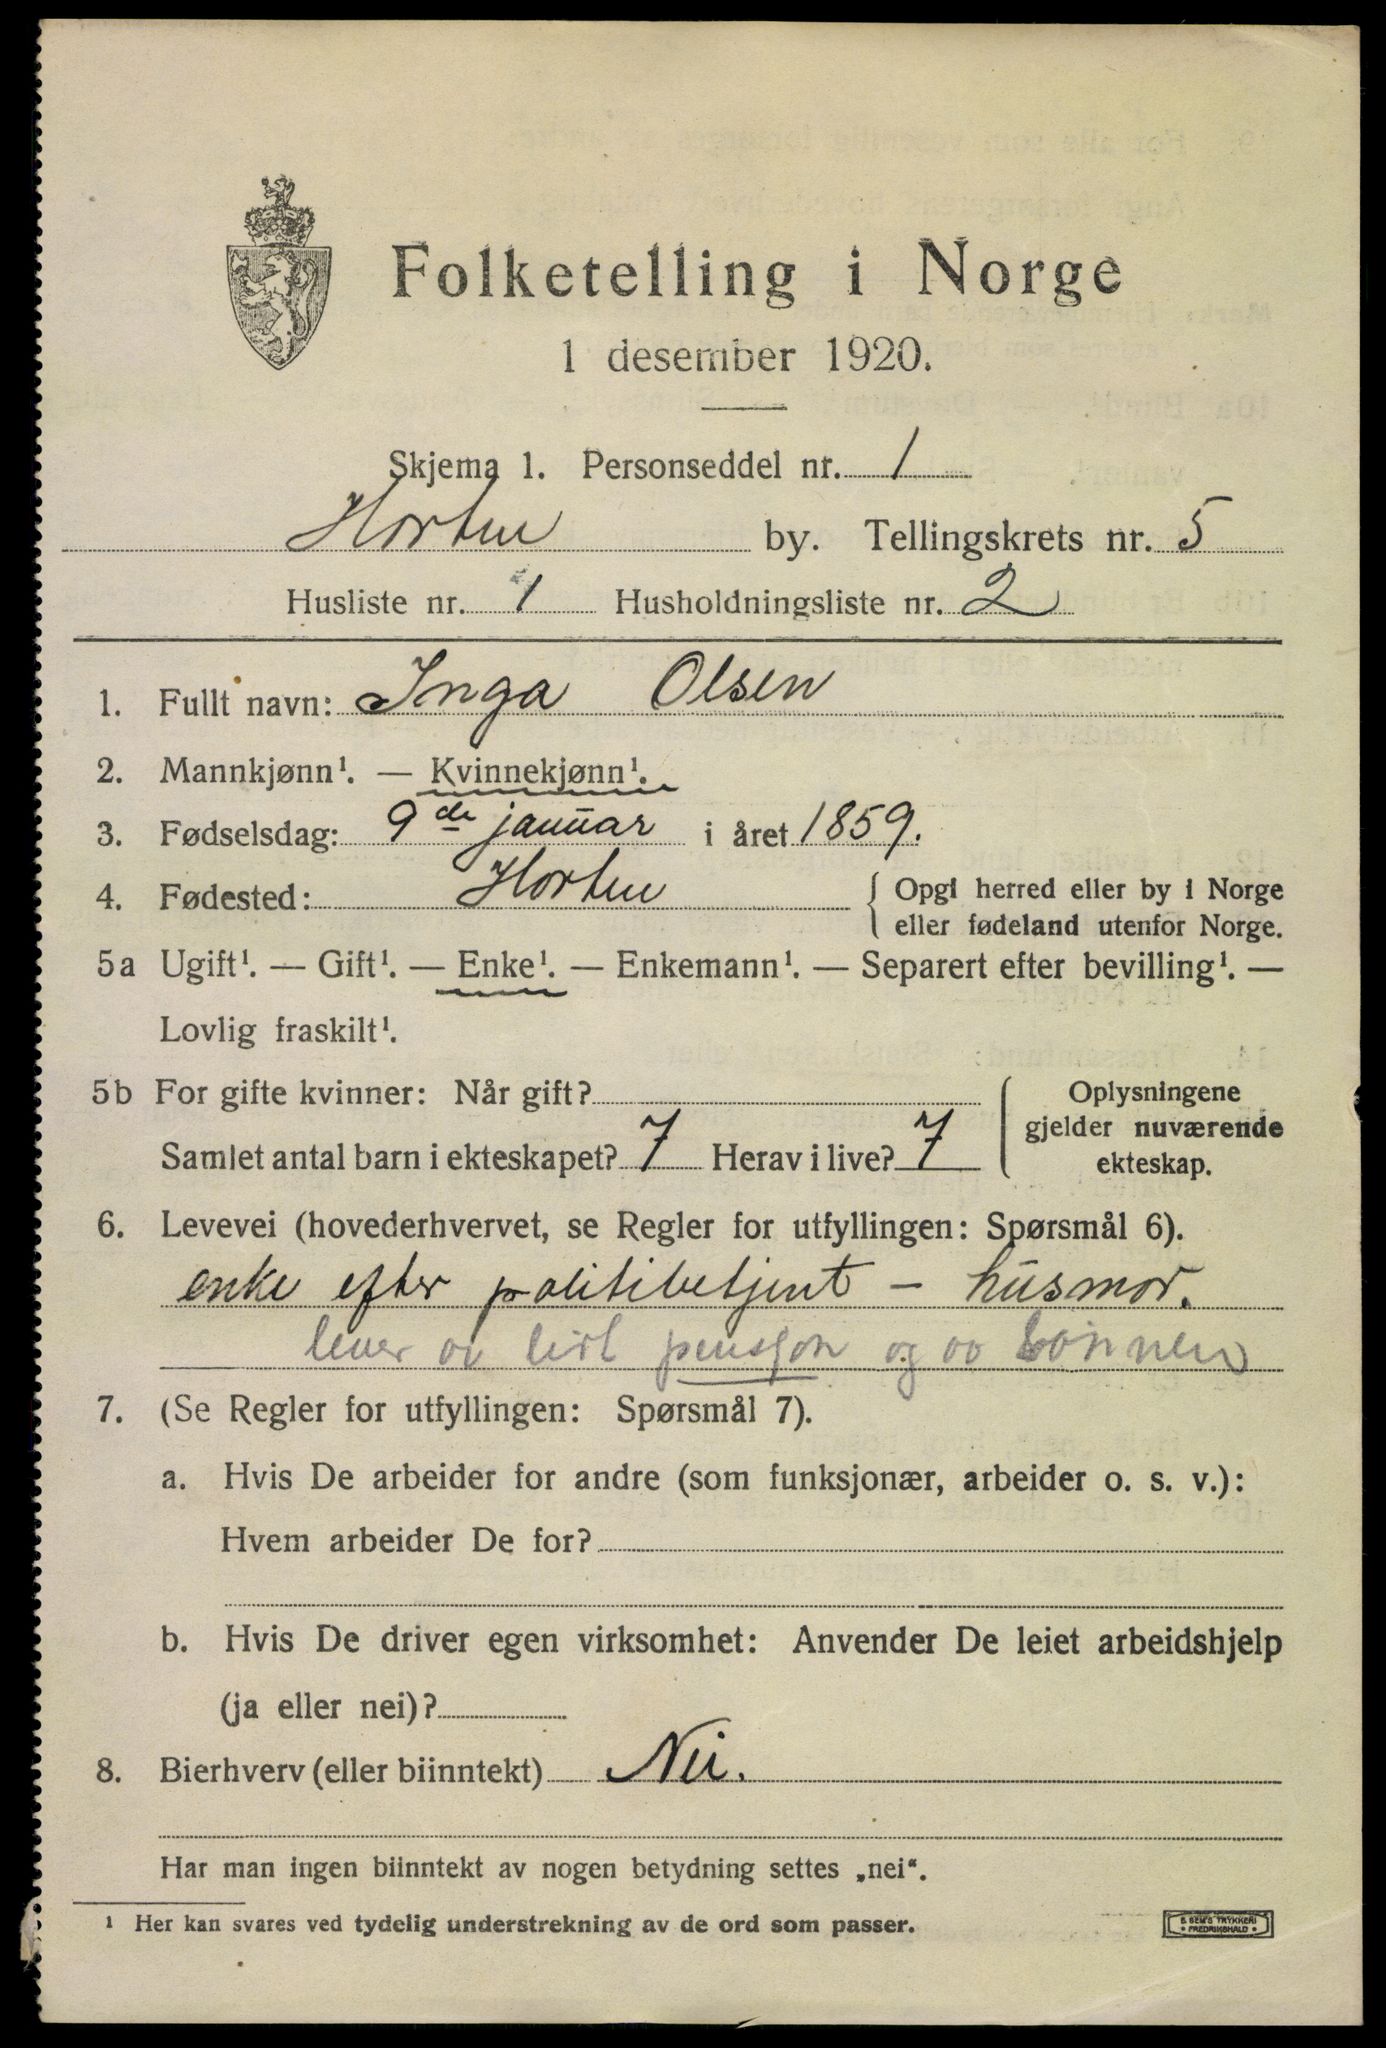 Folketelling i Norge
1 desember 1920.
Skjema 1. Personseddel nr. 1
Horten by. Tellingskrets nr. 5
Husliste nr. 1 Husholdningsliste nr. 2
1. Fullt navn: Inga Olsen
2. Mannkjønn¹. — Kvinnekjønn¹.
3. Fødselsdag: 9de januar i året 1859.
4. Fødested: Horten { Opgi herred eller by i Norge
eller fødeland utenfor Norge.
5a Ugift¹. — Gift¹. — Enke¹. — Enkemann¹. — Separert efter bevilling¹. —
Lovlig fraskilt¹.
5b For gifte kvinner: Når gift?
Samlet antal barn i ekteskapet? 7 Herav i live? 7
Oplysningene
gjelder nuværende
ekteskap.
6. Levevei (hovederhvervet, se Regler for utfyllingen: Spørsmål 6).
enke efter politibetjent — husmor.
lever av litt pensjon og av sønnen
7. (Se Regler for utfyllingen: Spørsmål 7).
a. Hvis De arbeider for andre (som funksjonær, arbeider o. s. v.):
Hvem arbeider De for?
b. Hvis De driver egen virksomhet: Anvender De leiet arbeidshjelp
(ja eller nei)?
8. Bierhverv (eller biinntekt) Nei.
Har man ingen biinntekt av nogen betydning settes „nei“.
¹ Her kan svares ved tydelig understrekning av de ord som passer.
E. SEM'S TRYKKERI
• FREDRIKSHALD •